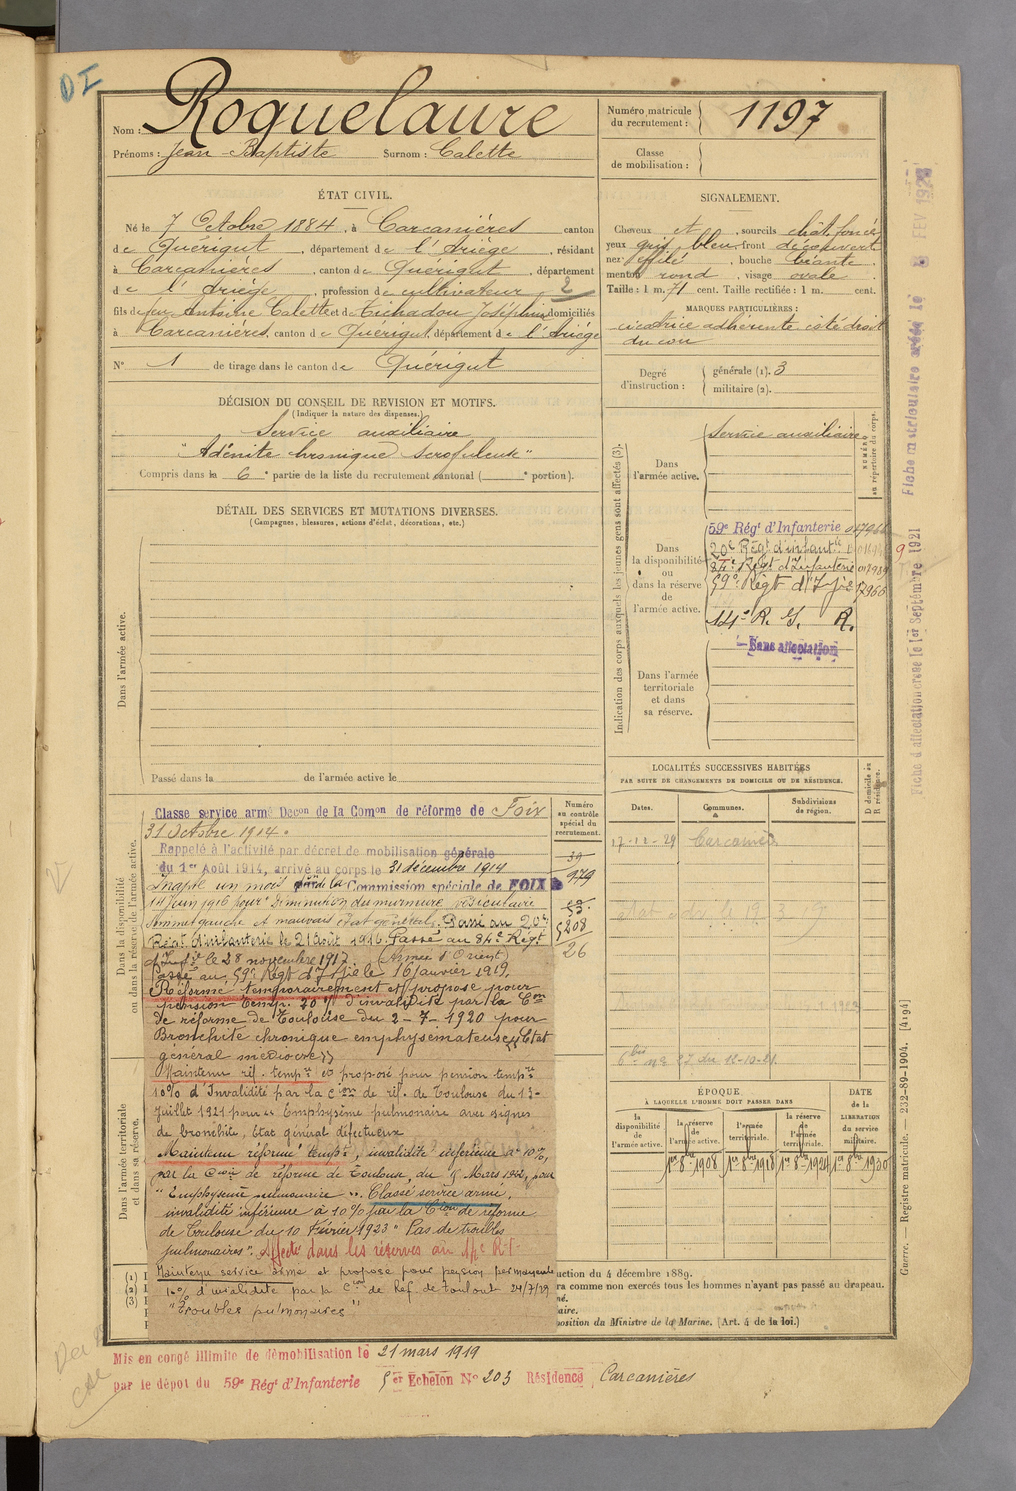 DI
Nom : Roquelaure
Prénoms : Jean-Baptiste Surnom : Calette
Numéro matricule du recrutement : 1197
Classe de mobilisation :
ÉTAT CIVIL.
Né le 7 Octobre 1884, à Carcanières canton
de Quérigut, département de l'Ariège, résidant
à Carcanières, canton de Quérigut, département
de l'Ariège, profession de cultivateur 2
fils de feu Antoine Calette et de Tichadou Joséphine domiciliés
à Carcanières, canton de Quérigut, département de l'Ariège
N° 1 de tirage dans le canton de Quérigut
SIGNALEMENT.
Cheveux et, sourcils chât. foncé
yeux gris bleu front découvert
nez effilé, bouche béante,
menton rond, visage ovale.
Taille : 1 m. 71 cent. Taille rectifiée : 1 m. cent.
MARQUES PARTICULIÈRES :
cicatrice adhérente côté droit
du cou
Degré d'instruction : générale (1). 3
militaire (2).
DÉCISION DU CONSEIL DE REVISION ET MOTIFS.
(Indiquer la nature des dispenses.)
Service auxiliaire
"Adénite chronique scrofuleuse"
Compris dans la 6e partie de la liste du recrutement cantonal ( e portion).
DÉTAIL DES SERVICES ET MUTATIONS DIVERSES.
(Campagnes, blessures, actions d'éclat, décorations, etc.)
Dans l'armée active.
Passé dans la de l'armée active le
Indication des corps auxquels les jeunes gens sont affectés (3).
NUMÉRO au répertoire du corps.
Dans l'armée active.
Service auxiliaire
Dans la disponibilité ou dans la réserve de l'armée active.
59e Régt d'Infanterie
20e Régt d'infantie
84e Régt d'Infanterie
59e Régt d'Infie 17966
14e R. G. R.
Sans affectation
Dans l'armée territoriale et dans sa réserve.
Fiche matriculaire créée le 8 FEV 192
Fiche d'affectation créée le 1er Septembre 1921
LOCALITÉS SUCCESSIVES HABITÉES
PAR SUITE DE CHANGEMENTS DE DOMICILE OU DE RÉSIDENCE.
D domicile ou R résidence.
Dates. Communes. Subdivisions de région.
17-11-29 Carcanière
Dans la disponibilité ou dans la réserve de l'armée active.
Numéro au contrôle spécial du recrutement.
39
979
53
5208
26
Classe service armé Decon de la Comon de réforme de Foix
31 Octobre 1914.
Rappelé à l'activité par décret de mobilisation générale
du 1er Août 1914, arrivé au corps le 31 décembre 1914
Inapte un mois par la Commission spéciale de FOIX
14 Juin 1916 pour diminution du murmure vésiculaire
sommet gauche et mauvais état général. Passé au 20e
Régt d'infanterie le 21 août 1916. Passé au 84e Régt
d'Infie le 28 novembre 1917. (Armée d'Orient)
Passé au 59e Régt d'Infie le 16 janvier 1919.
Réformé temporairement et proposé pour
pension temp. 20 % d'invalidité par la Con
de réforme de Toulouse du 2-7-1920 pour
Bronchite chronique emphysémateuse, Etat
général médiocre"
Maintenu réf. tempre et proposé pour pension tempre
10% d'Invalidité par la Cion de réf. de Toulouse du 13-
Juillet 1921 pour "Emphysème pulmonaire avec signes
de bronchite, Etat général défectueux
Maintenu réformé tempre, invalidité inférieure à 10%,
par la Cion de réforme de Toulouse, du 8 Mars 1922, pour
"Emphysème pulmonaire". Classé service armé,
invalidité inférieure à 10% par la Cion de réforme
de Toulouse du 10 Février 1923 "Pas de troubles
pulmonaires". Affecté dans les réserves au 14e R.I
Maintenu service armé et proposé pour pension permanente
10% d'invalidité par la Cion de Réf. de Toulouse 24/7/29
"Troubles pulmonaires"
6 bis n° 27 du 12-10-21.
Dans l'armée territoriale et dans sa réserve.
ÉPOQUE
À LAQUELLE L'HOMME DOIT PASSER DANS
DATE de la LIBÉRATION du service militaire.
la disponibilité de l'armée active. la réserve de l'armée active. l'armée territoriale. la réserve de l'armée territoriale.
1er 8bre 1908 1er 8bre 1918 1er 8bre 1924 1er 8bre 1930
(1)
(2)
(3)
uction du 4 décembre 1889.
ra comme non exercés tous les hommes n'ayant pas passé au drapeau.
né.
aire.
position du Ministre de la Marine. (Art. 4 de la loi.)
Guerre. — Registre matricule. — 232-89-1904. [4194]
Mis en congé illimité de démobilisation le 21 mars 1919
par le dépôt du 59e Régt d'Infanterie 5er Echelon N° 203 Résidence Carcanières